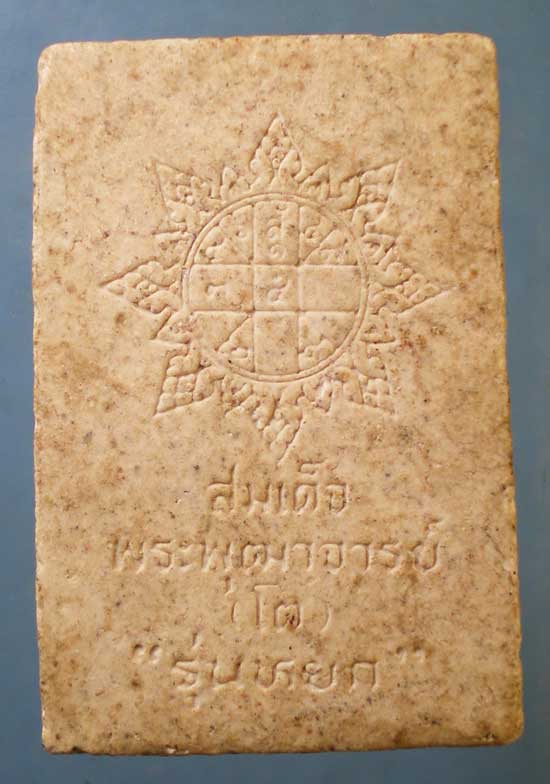 สมเด็จ
พระพุฒาจารย์
(โต)
"รุ่นหยก"